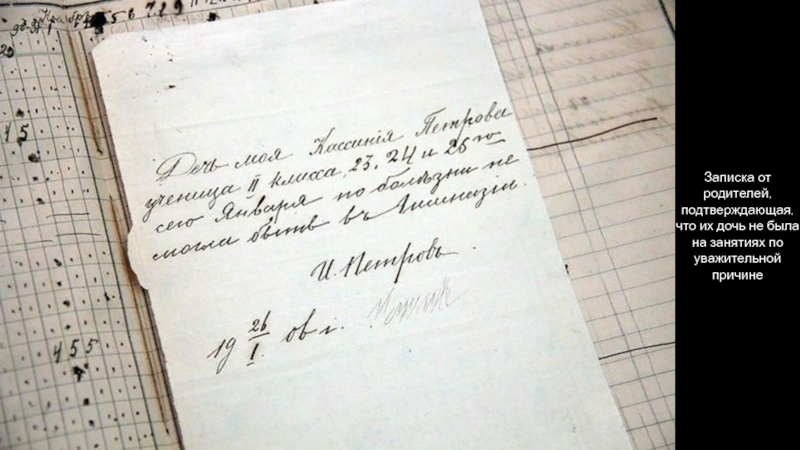 Дочь моя Кассинія Петрова
ученица II класса, 23, 24 и 25го
сего Января по болѣзни не
могла быть въ Гимназіи.
И. Петровъ.
19 26/I 06 г.
455
Записка от
родителей,
подтверждающая,
что их дочь не была
на занятиях по
уважительной
причине